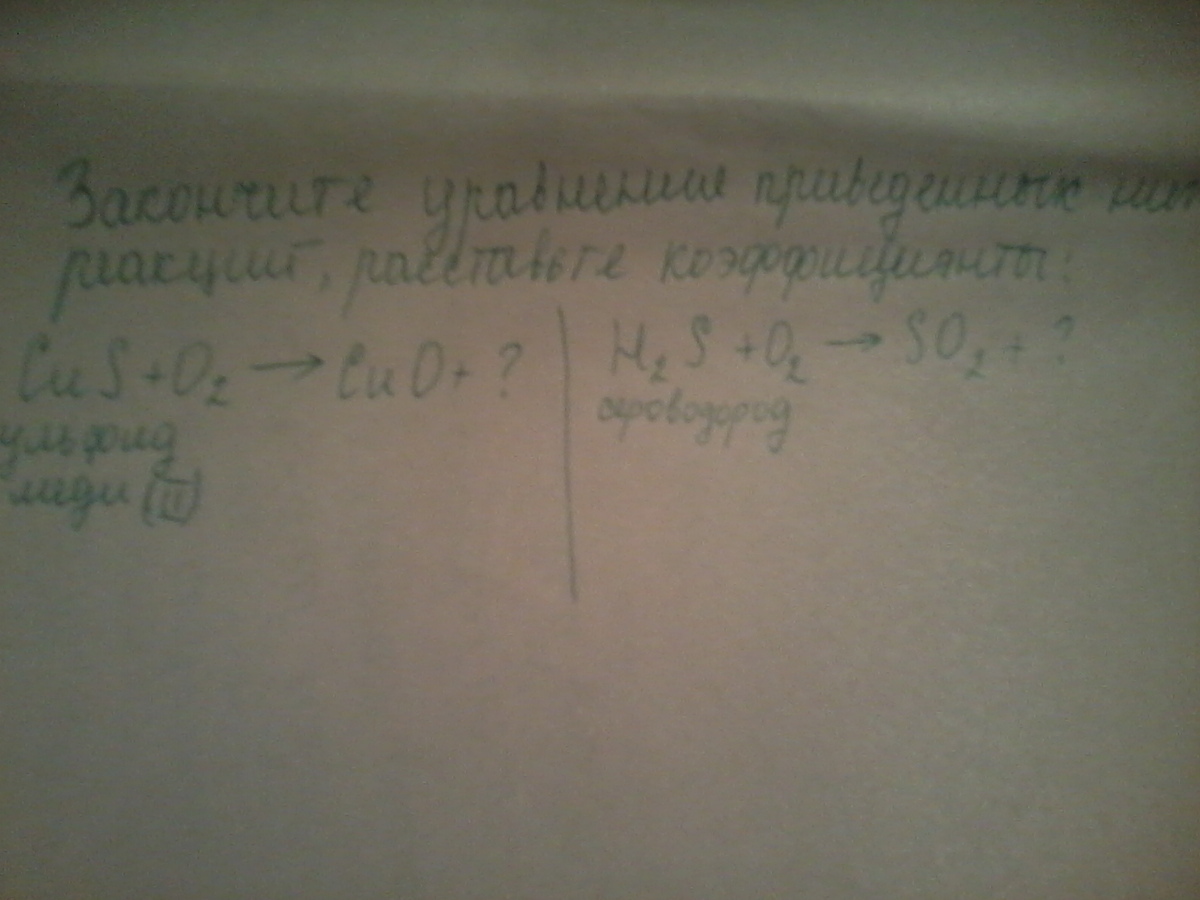 Закончите уравнения приведенных
реакций, расставьте коэффициянты:
CuS + O₂ → CuO + ? | H₂S + O₂ → SO₂ + ?
ульфид
меди (II)
сероводород